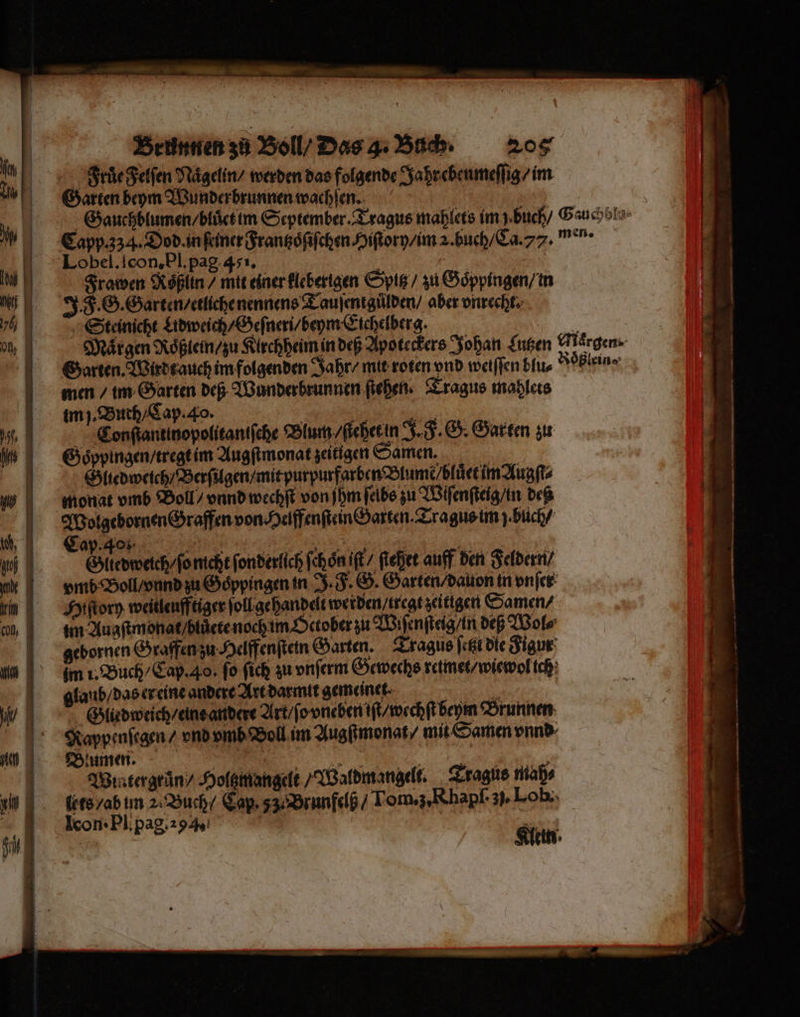 Brunnen zu Boll/ Das 4. Buch. 205
Frůe Felsen Någelin/ werden das folgende Jahr ebenmessig/ im
Garten beym Wunderbrunnen wachsen.
Gauchblumen/blůet im September. Tragus mahlets im j.buch/
Gauchblu-
Capp.334. Dod. in seiner Frantzősischen History/im 2.buch/Ca.77.
men.
Lobel. Icon. Pl. pag. 451.
Frawen Rőßlin / mit einer kleberigen Spitz / zu Gőppingen/ in
J.F.G. Garten/etliche nennens Tausentgůlden/ aber vnrecht.
Steinicht Lidweich/Gesneri/beym Eichelberg.
Mårgen Rőßlein/zu Kirchheim in deß Apoteckers Johan Lutzen
Mårgen-
Garten. Wirdt auch im folgenden Jahr/ mit roten vnd weissen blu-
Rőßlein.
men / im Garten deß Wunderbrunnen stehen. Tragus mahlets
im j. Buch/Cap.40.
Constantinopolitanische Blum/stehet in J.F.G. Garten zu
Gőppingen/tregt im Augstmonat zeitigen Samen.
Gliedweich/Bersilgen/mit purpurfarben Blume/blůet im Augst-
monat vmb Boll/ vnnd wechst von jhm selbs zu Wisensteig/in deß
Wolgebornen Graffen von Helffenstein Garten. Tragus im j.buch/
Cap.40.
Gliedweich/so nicht sonderlich schőn ist/ stehet auff den Feldern/
vmb Boll/vnnd zu Gőppingen in J.F.G. Garten/dauon in vnser
History weitleufftiger soll gehandelt werden/tregt zeitigen Samen/
im Augstmonat/blůete noch im October zu Wisensteig/in deß Wol-
gebornen Graffen zu Helffenstein Garten. Tragus setzt die Figur
im 1. Buch/Cap.40. so sich zu vnserm Gewechs reimet/wiewol ich
glaub/das er eine andere Art darmit gemeinet.
Gliedweich/eine andere Art/so vneben ist/wechst beym Brunnen
Rappensegen / vnd vmb Boll im Augstmonat/ mit Samen vnnd
Blumen.
Wintergrůn/ Holtzmangelt /Waldmangelt. Tragus mah-
lets/ab im 2. Buch/ Cap. 53. Brunfelß/ Tom.3. Rhaps. 31. Lob.
Icon. Pl. pag. 294.
Klein